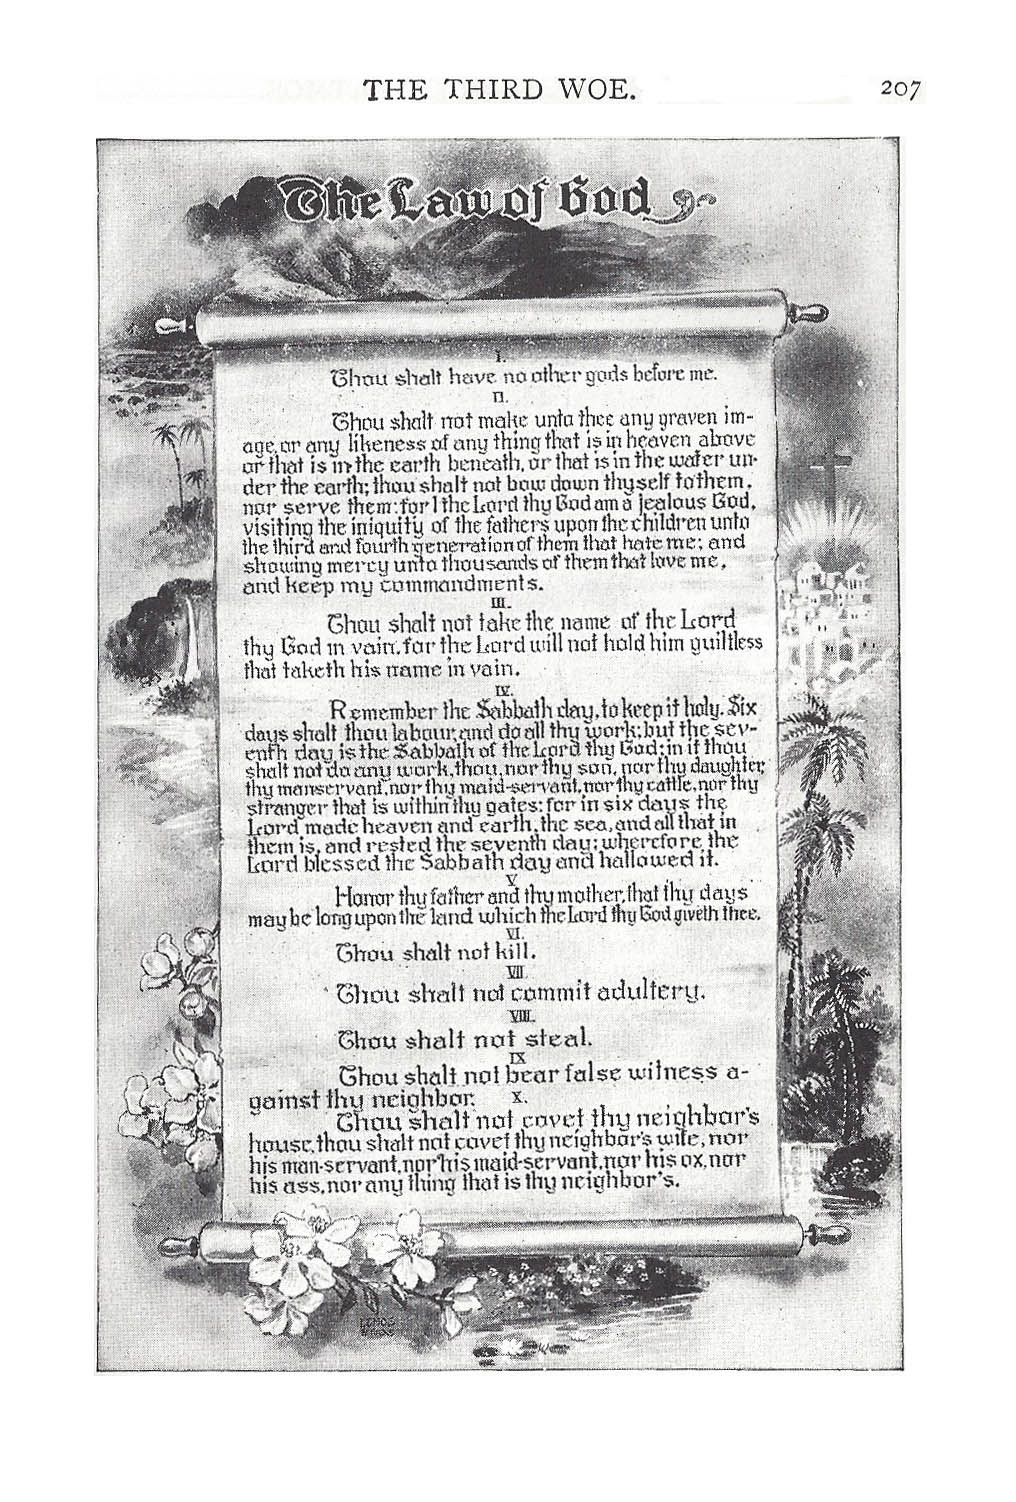 THE THIRD WOE.
207
The Law of God
I.
Thou shalt have no other gods before me.
II.
Thou shalt not make unto thee any graven im-
age, or any likeness of any thing that is in heaven above
or that is in the earth beneath, or that is in the water un-
der the earth; thou shalt not bow down thyself to them,
nor serve them: for I the Lord thy God am a jealous God,
visiting the iniquity of the fathers upon the children unto
the third and fourth generation of them that hate me; and
showing mercy unto thousands of them that love me,
and keep my commandments.
III.
Thou shalt not take the name of the Lord
thy God in vain, for the Lord will not hold him guiltless
that taketh his name in vain.
IV.
Remember the Sabbath day, to keep it holy. Six
days shalt thou labour, and do all thy work; but the sev-
enth day is the Sabbath of the Lord thy God: in it thou
shalt not do any work, thou, nor thy son, nor thy daughter,
thy manservant, nor thy maid-servant, nor thy cattle, nor thy
stranger that is within thy gates: for in six days the
Lord made heaven and earth, the sea, and all that in
them is, and rested the seventh day; wherefore the
Lord blessed the Sabbath day and hallowed it.
V.
Honor thy father and thy mother, that thy days
may be long upon the land which the Lord thy God giveth thee.
VI.
Thou shalt not kill.
VII.
Thou shalt not commit adultery.
VIII.
Thou shalt not steal.
IX
Thou shalt not bear false witness a-
gainst thy neighbor.
X.
Thou shalt not covet thy neighbor's
house, thou shalt not covet thy neighbor's wife, nor
his man-servant, nor his maid-servant, nor his ox, nor
his ass, nor any thing that is thy neighbor's.